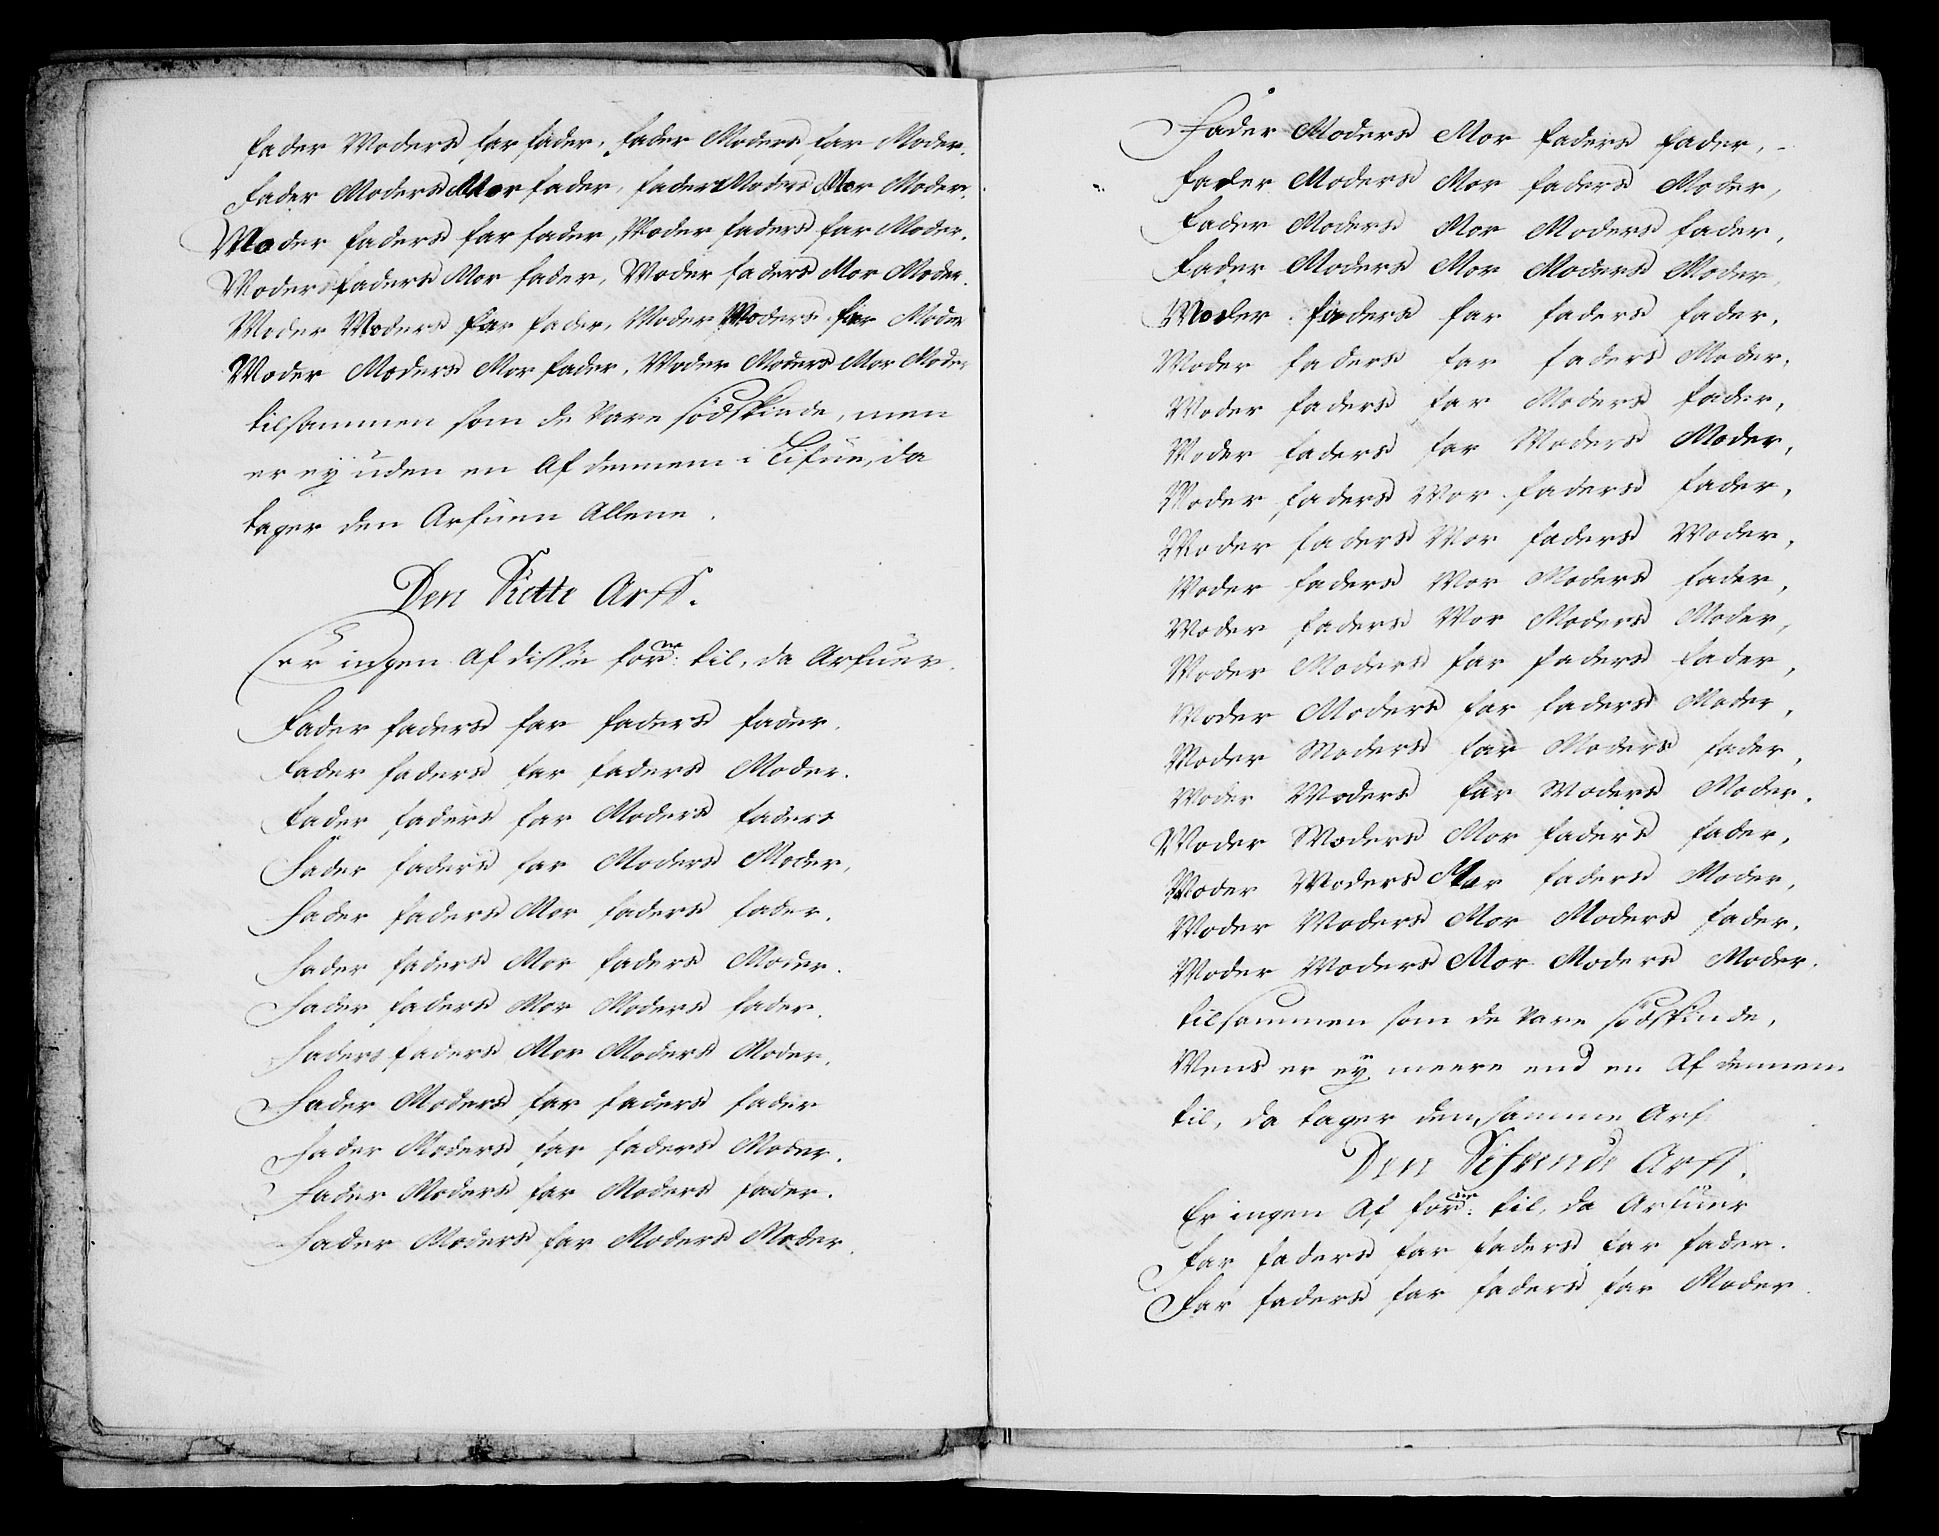 Fader Moders far fader, fader Moders far Moder.
Fader Moders Mor fader, fader Moders Mor Moder.
Moder faders far fader, Moder faders far Moder.
Moders faders Mor fader, Moder faders Mor Moder.
Moder Moders far fader, Moder Moders far Moder
Moder Moders Mor fader, Moder Moders Mor Moder
tilsammen som de vare södskinde, men
er ey uden en Af dennem i Lifue, da
tager den Arfuen Allene.
Den Siette Arff.
Er ingen Af disse for: til, da Arfuer.
Fader faders far faders fader.
Fader faders far faders Moder.
Fader faders far Moders faders
Fader faders far Moders Moder,
Fader faders Mor faders fader.
Fader faders Mor faders Moder.
Fader faders Mor Moders fader.
Faders faders Mor Moders Moder.
Fader Moders far faders fader
Fader Moders far faders Moder.
Fader Moders far Moders fader.
Fader Moders far Moders Moder.
Fader Moders Mor faders fader,
Fader Moders Mor faders Moder,
Fader Moders Mor Moders fader,
Fader Moders Mor Moders Moder,
Moder faders far faders fader,
Moder faders far faders Moder,
Moder faders far Moders fader,
Moder faders far Moders Moder,
Moder faders Mor faders fader,
Moder faders Mor faders Moder,
Moder faders Mor Moders fader,
Moder faders Mor Moders Moder,
Moder Moders far faders fader,
Moder Moders far faders Moder,
Moder Moders far Moders fader,
Moder Moders far Moders Moder.
Moder Moders Mor faders fader,
Moder Moders Mor faders Moder,
Moder Moders Mor Moders fader,
Moder Moders Mor Moders Moder.
tilsammen som de vare södskinde,
Mens er ey meere end en Af dennem
til, da tager den samme Arf
Den Sifuende Arff.
Er ingen Af for: til, da Arfuer
Far faders far faders far fader.
Far faders far faders far Moder.